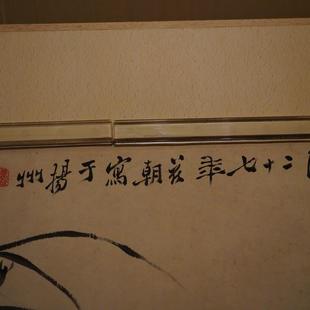 二十七年花朝寫于揚州